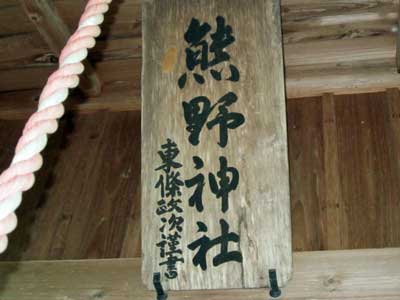 熊野神社
東條政次謹書